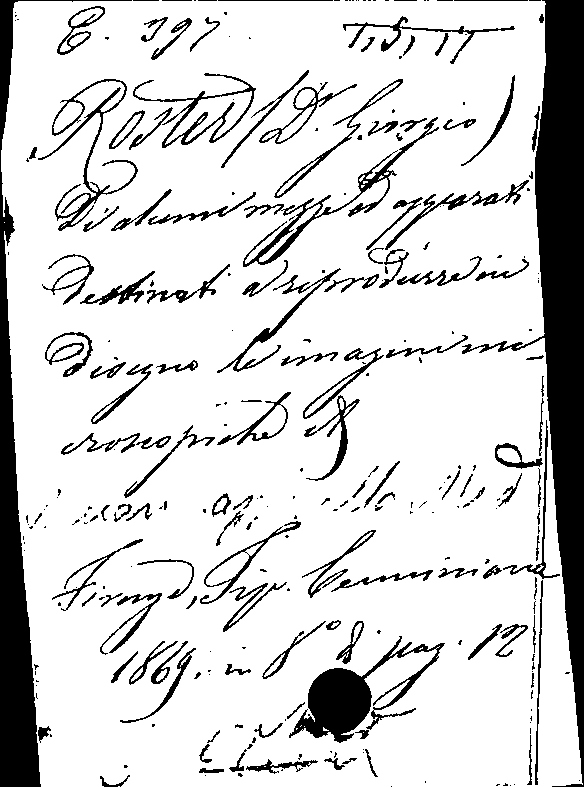 E. 397 T, S, 17
Roster (Dr. Giorgio)
Di alcuni mezzi ed apparati
destinati a riprodurre in
disegno le imagini mi-
croscopiche
Firenze, Tip. Cenniniana
1869. in 8° di pag. 12